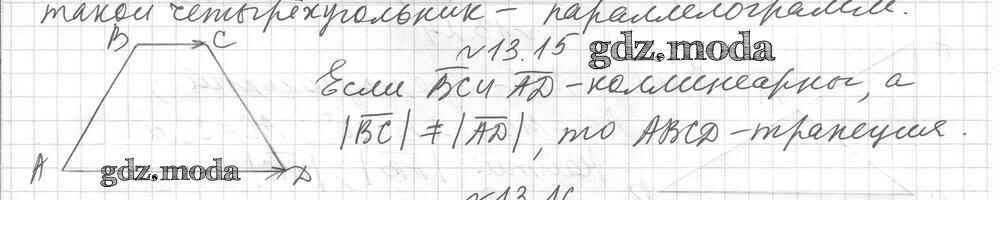 такой четырёхугольник – параллелограмм.
N13.15 gdz.moda
B C
Если BC и AD – коллинеарны, а
|BC| ≠ |AD|, то ABCD – трапеция.
A gdz.moda D